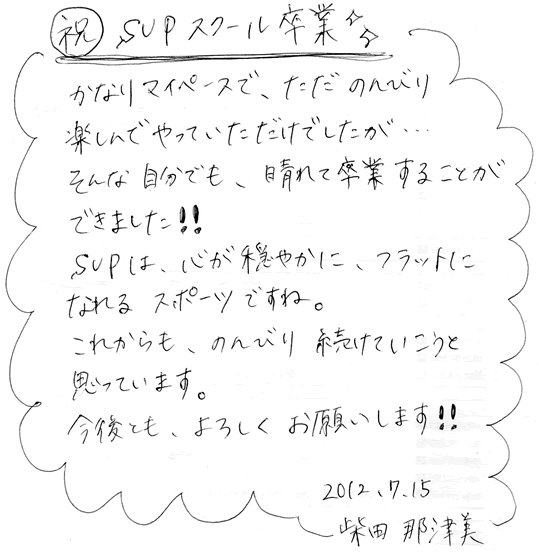 祝 SUPスクール卒業
かなりマイペースで、ただのんびり
楽しんでやっていただけでしたが・・・
そんな自分でも、晴れて卒業することが
できました!!
SUPは、心が穏やかに、フラットに
なれるスポーツですね。
これからも、のんびり続けていこうと
思っています。
今後とも、よろしくお願いします!!
2012.7.15
柴田 那津美